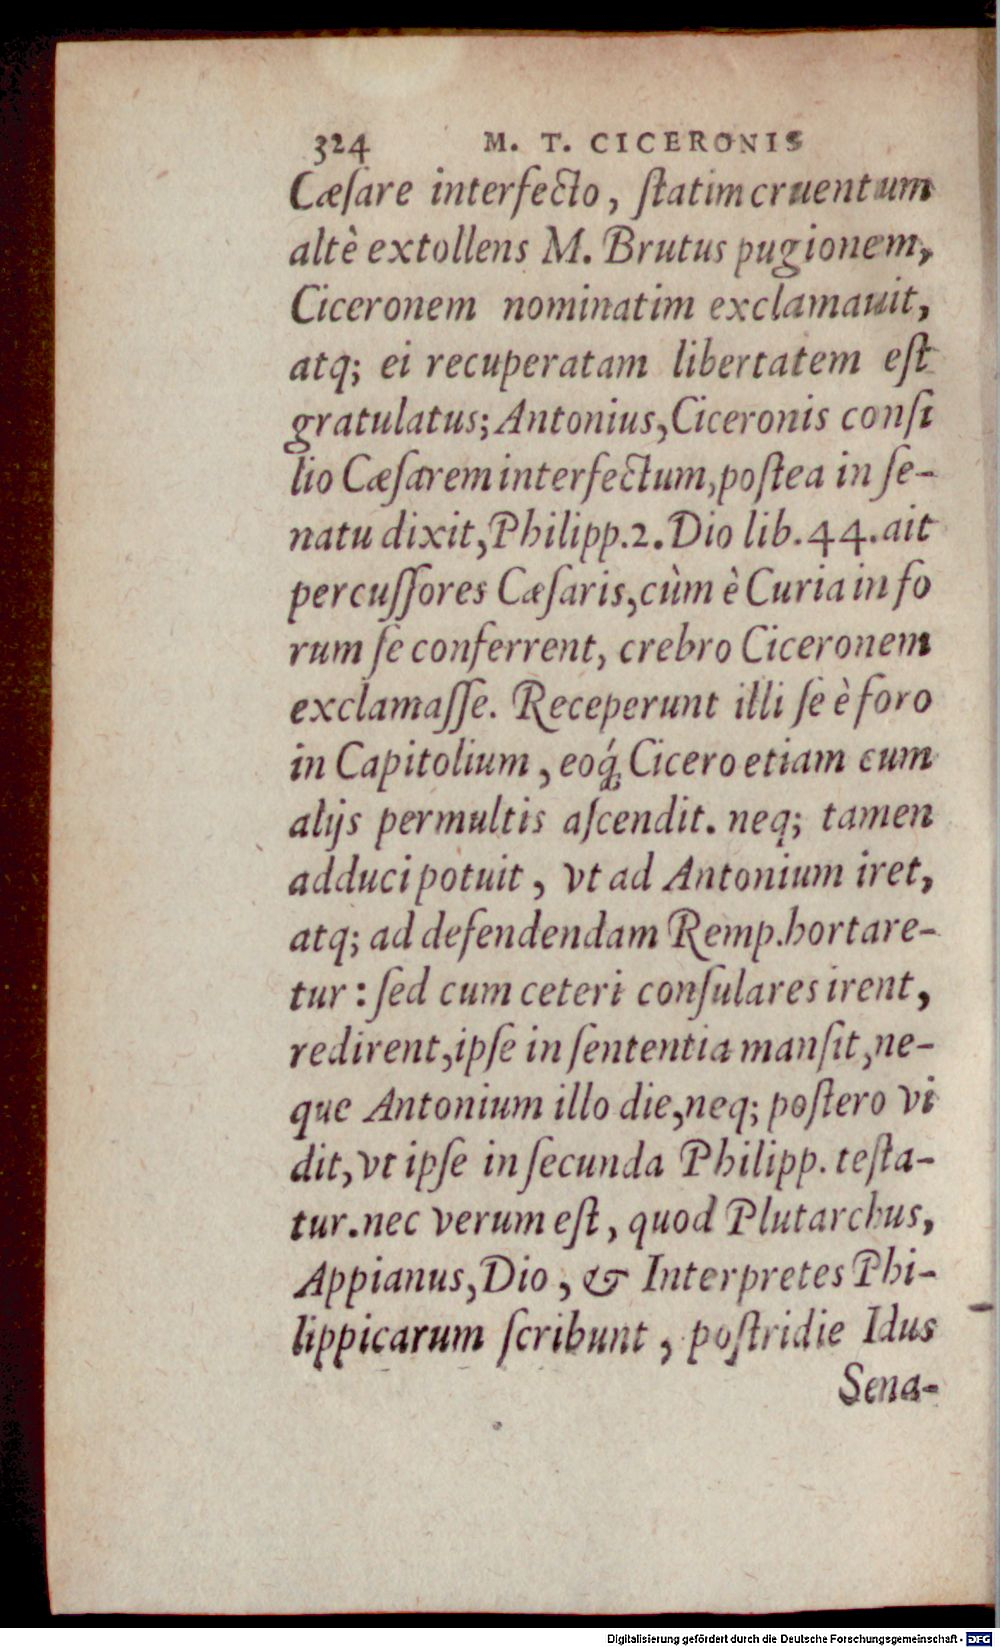 324 M. T. CICERONIS
Cæſare interfecto, ſtatim cruentum
altè extollens M. Brutus pugionem,
Ciceronem nominatim exclamauit,
atq; ei recuperatam libertatem eſt
gratulatus; Antonius, Ciceronis conſi
lio Cæſarem interfectum, poſtea in ſe-
natu dixit, Philipp. 2. Dio lib. 44. ait
percuſſores Cæſaris, cùm è Curia in fo
rum ſe conferrent, crebro Ciceronem
exclamaſſe. Receperunt illi ſe è foro
in Capitolium, eoq́; Cicero etiam cum
alijs permultis aſcendit. neq; tamen
adduci potuit, vt ad Antonium iret,
atq; ad defendendam Remp. hortare-
tur: ſed cum ceteri conſulares irent,
redirent, ipſe in ſententia manſit, ne-
que Antonium illo die, neq; poſtero vi
dit, vt ipſe in ſecunda Philipp. teſta-
tur. nec verum eſt, quod Plutarchus,
Appianus, Dio, & Interpretes Phi-
lippicarum ſcribunt, poſtridie Idus
Sena-
Digitalisierung gefördert durch die Deutsche Forschungsgemeinschaft - DFG